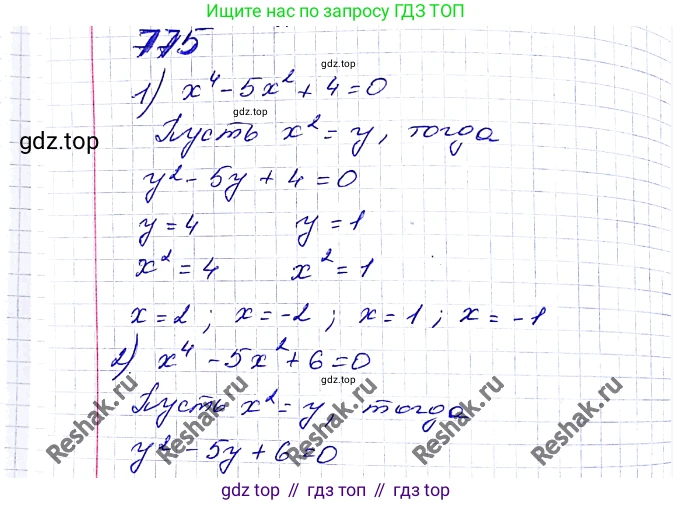 Ищите нас по запросу ГДЗ ТОП
775
gdz.top
1) x⁴ - 5x² + 4 = 0
gdz.top
gdz.top
Пусть x² = y, тогда
y² - 5y + 4 = 0
y = 4 y = 1
x² = 4 x² = 1
x = 2 ; x = -2 ; x = 1 ; x = -1
2) x⁴ - 5x² + 6 = 0
gdz.top
Пусть x² = y, тогда
y² - 5y + 6 = 0
Reshak.ru
Reshak.ru
Reshak.ru
gdz top // гдз топ // гдз.top